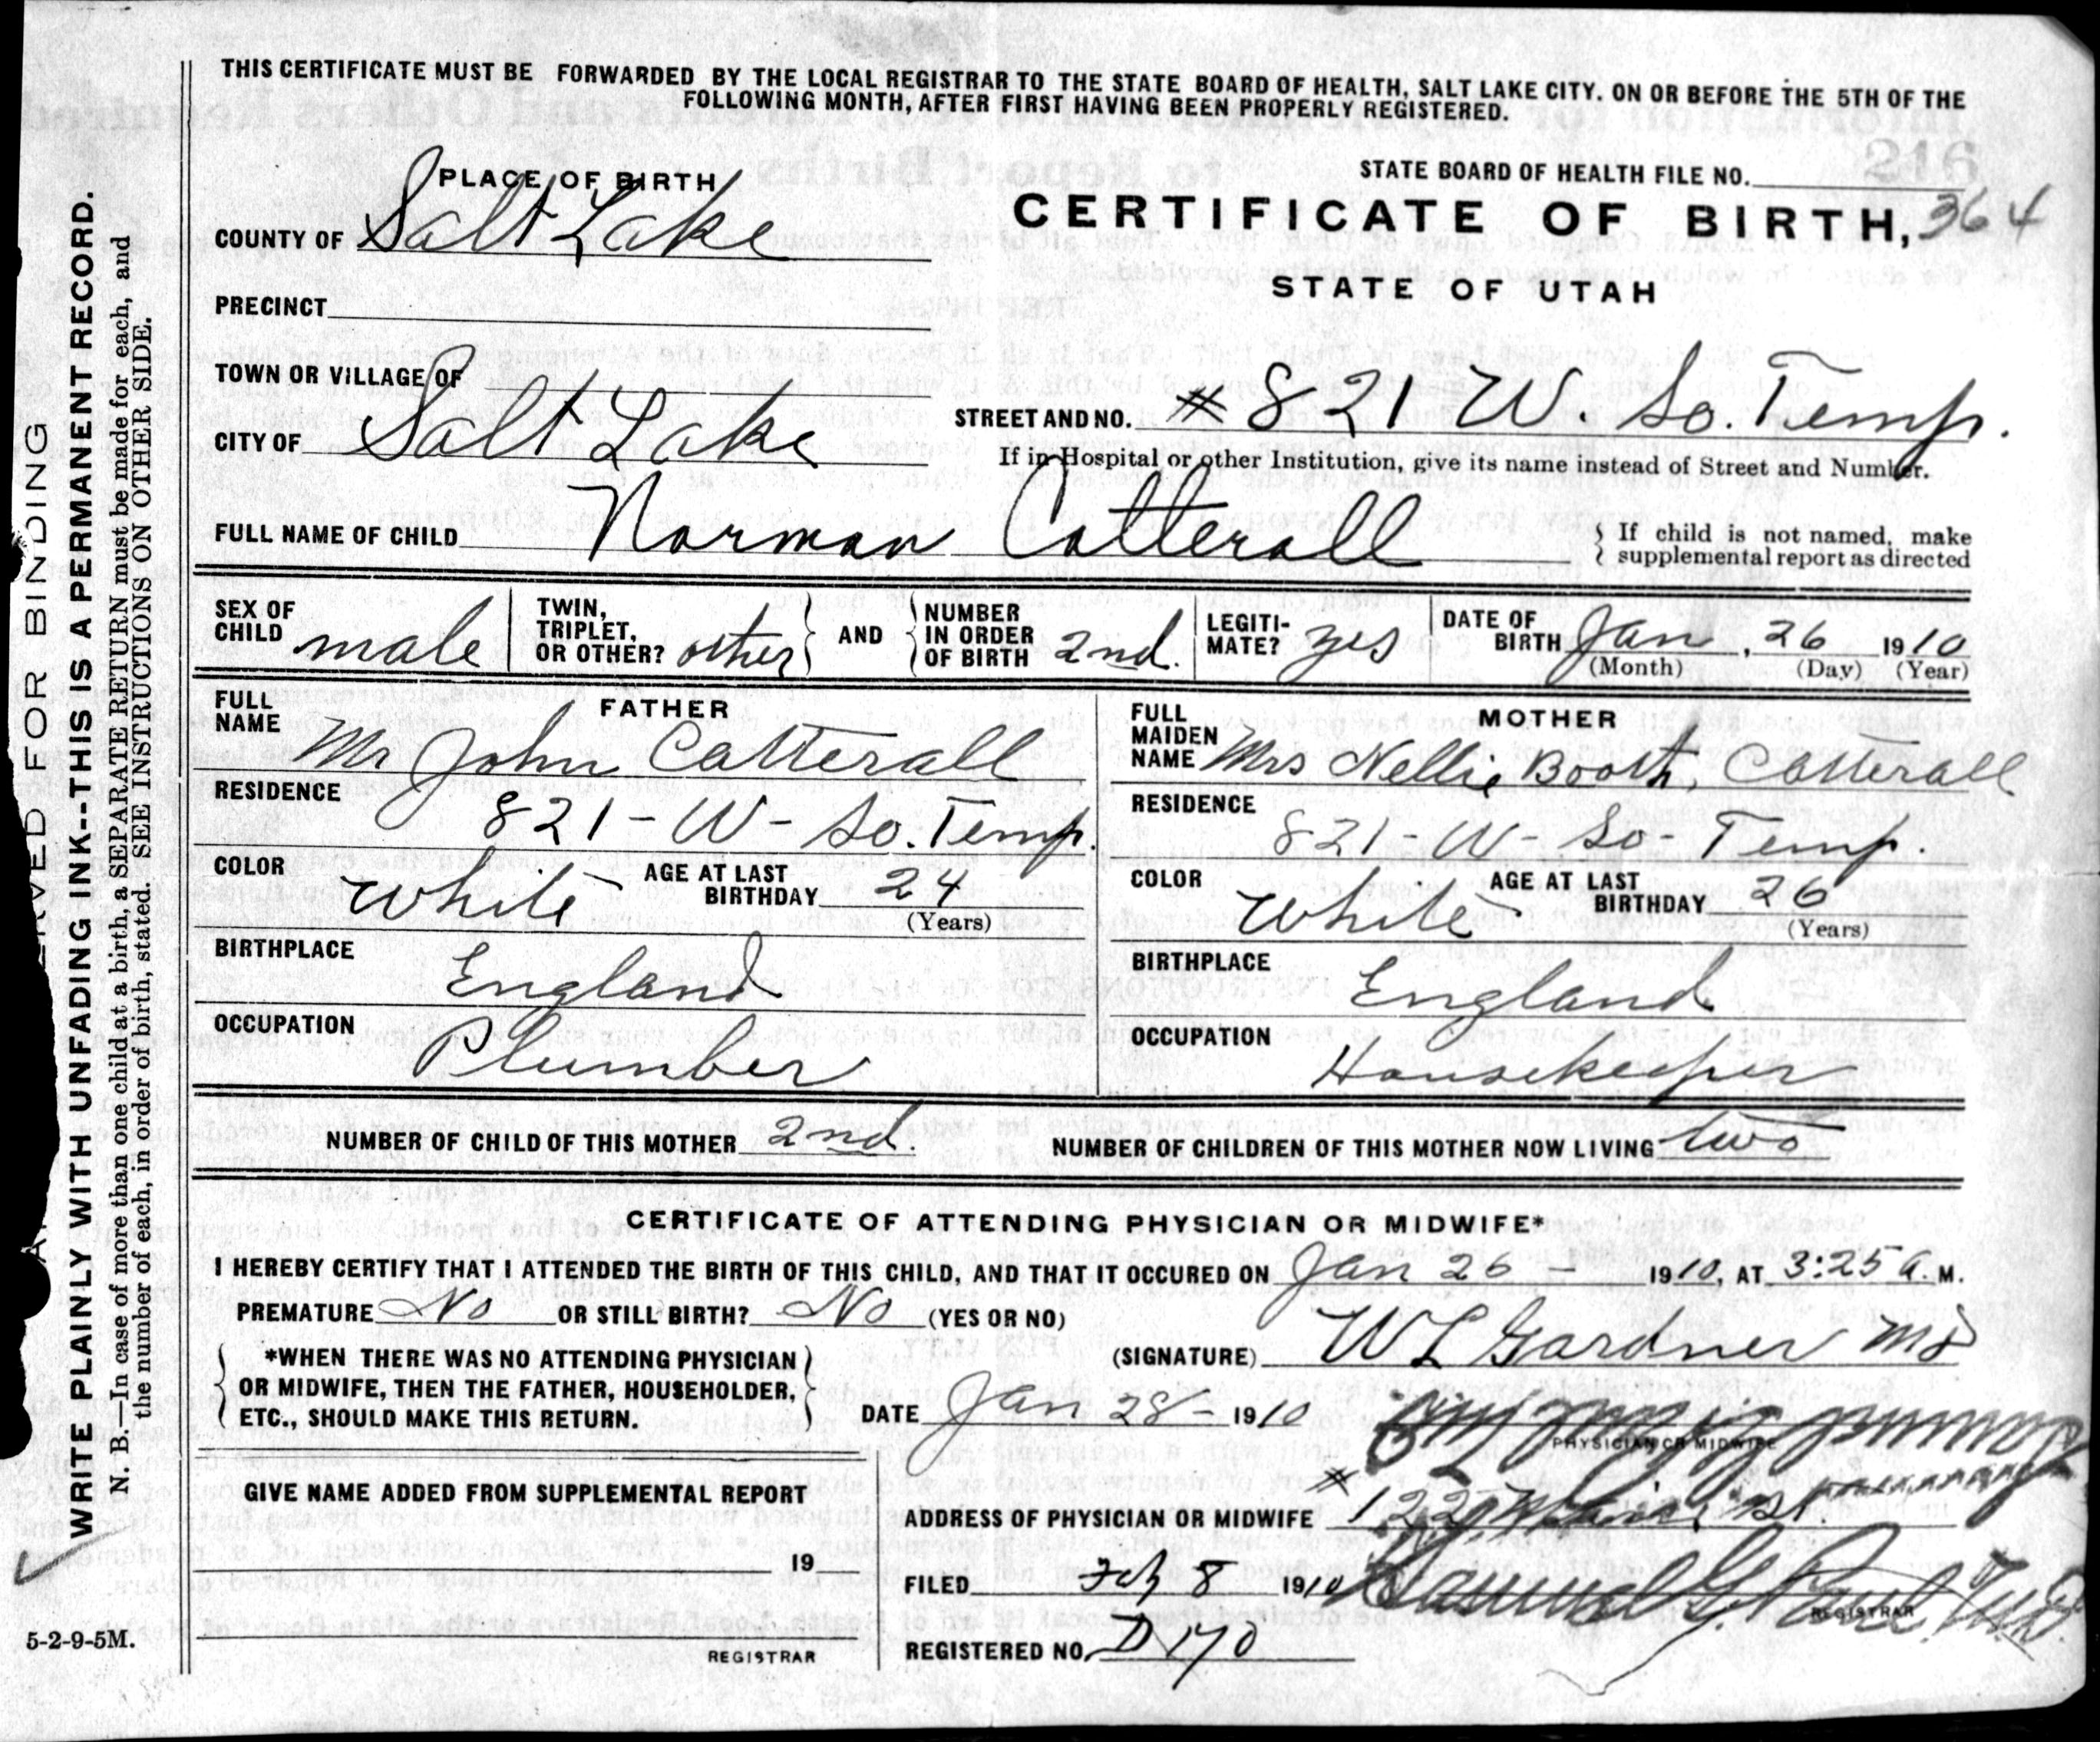 THIS CERTIFICATE MUST BE FORWARDED BY THE LOCAL REGISTRAR TO THE STATE BOARD OF HEALTH, SALT LAKE CITY. ON OR BEFORE THE 5TH OF THE
FOLLOWING MONTH, AFTER FIRST HAVING BEEN PROPERLY REGISTERED.
216
PLACE OF BIRTH
STATE BOARD OF HEALTH FILE NO.
COUNTY OF Salt Lake
CERTIFICATE OF BIRTH, 364
STATE OF UTAH
PRECINCT
TOWN OR VILLAGE OF
CITY OF Salt Lake
STREET AND NO. # 821 W. So. Temp.
If in Hospital or other Institution, give its name instead of Street and Number.
FULL NAME OF CHILD Norman Catterall
{ If child is not named, make
supplemental report as directed
SEX OF CHILD male
TWIN, TRIPLET, OR OTHER? other } AND { NUMBER IN ORDER OF BIRTH 2nd.
LEGITI-MATE? yes
DATE OF BIRTH Jan, 26 1910
(Month) (Day) (Year)
FATHER
FULL NAME Mr John Catterall
RESIDENCE 821 - W - So. Temp.
COLOR White AGE AT LAST BIRTHDAY 24
(Years)
BIRTHPLACE England
OCCUPATION Plumber
MOTHER
FULL MAIDEN NAME Mrs Nellie Booth, Catterall
RESIDENCE 821 - W - So - Temp.
COLOR White AGE AT LAST BIRTHDAY 26
(Years)
BIRTHPLACE England
OCCUPATION Housekeeper
NUMBER OF CHILD OF THIS MOTHER 2nd. NUMBER OF CHILDREN OF THIS MOTHER NOW LIVING two
CERTIFICATE OF ATTENDING PHYSICIAN OR MIDWIFE*
I HEREBY CERTIFY THAT I ATTENDED THE BIRTH OF THIS CHILD, AND THAT IT OCCURED ON Jan 26 - 1910, AT 3:25 A. M.
PREMATURE No OR STILL BIRTH? No (YES OR NO)
{ *WHEN THERE WAS NO ATTENDING PHYSICIAN
OR MIDWIFE, THEN THE FATHER, HOUSEHOLDER,
ETC., SHOULD MAKE THIS RETURN. }
(SIGNATURE) W L Gardner MD
DATE Jan 28 - 1910
PHYSICIAN OR MIDWIFE
GIVE NAME ADDED FROM SUPPLEMENTAL REPORT
19
REGISTRAR
ADDRESS OF PHYSICIAN OR MIDWIFE # 122 Main St.
FILED Feb 8 1910 Samuel G. Paul
REGISTRAR
REGISTERED NO. D 170
5-2-9-5M.
RESERVED FOR BINDING
WRITE PLAINLY WITH UNFADING INK--THIS IS A PERMANENT RECORD.
N. B.—In case of more than one child at a birth, a SEPARATE RETURN must be made for each, and
the number of each, in order of birth, stated. SEE INSTRUCTIONS ON OTHER SIDE.